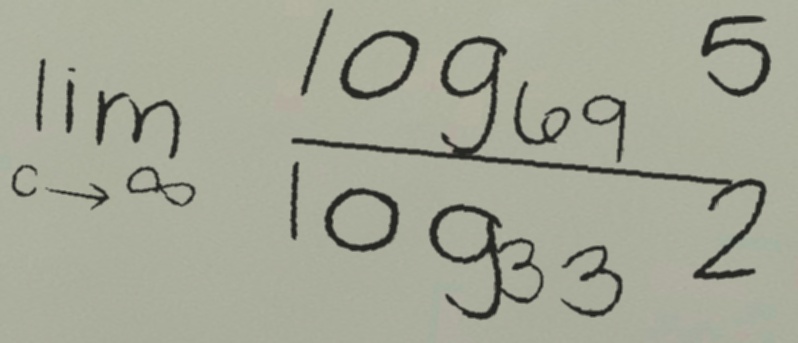 lim c→∞ log₆₉ 5
log₃₃ 2